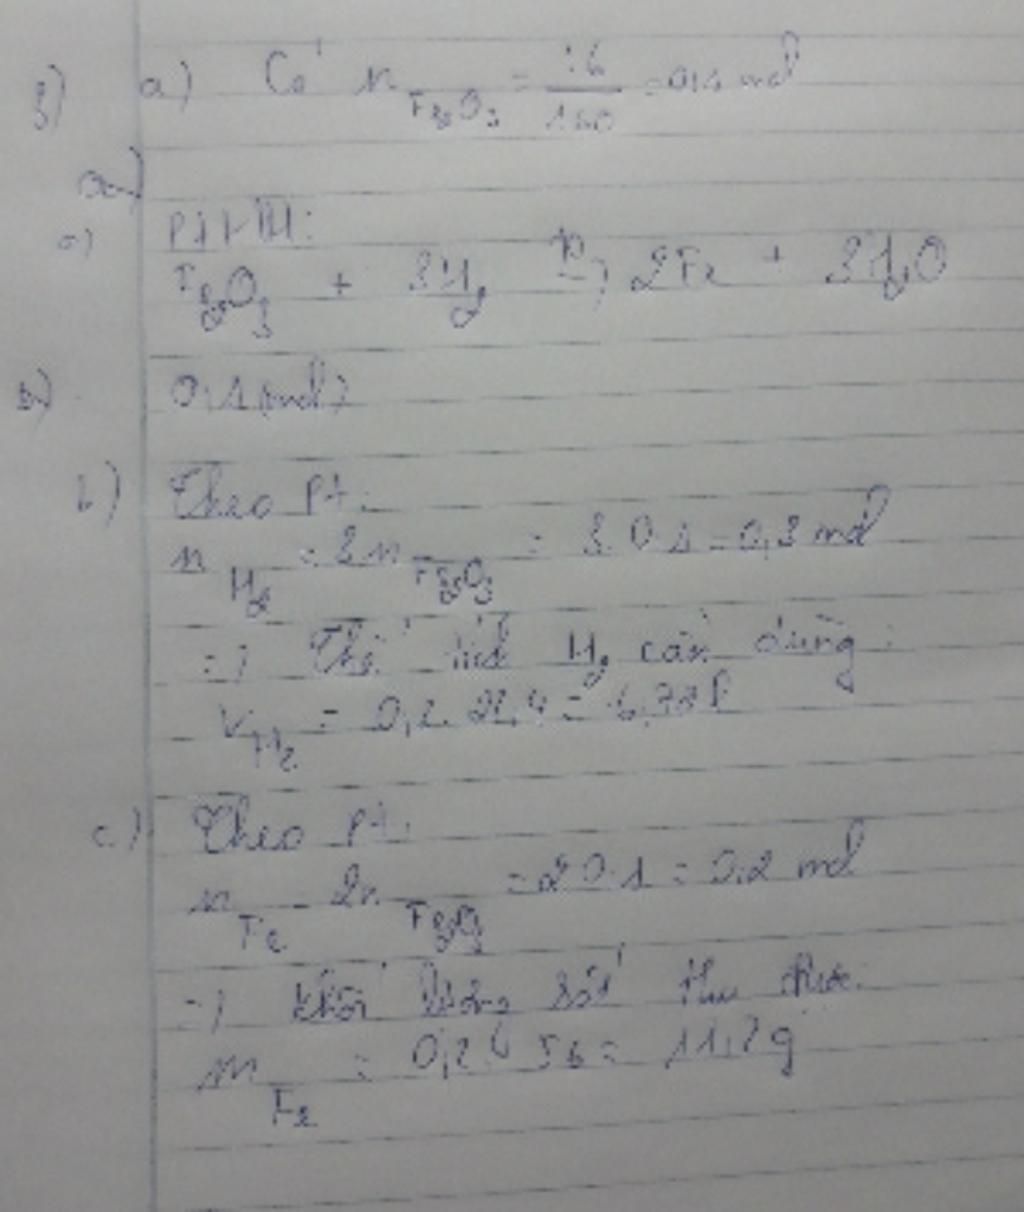 3) a) Có n Fe2O3 = 16/160 = 0,1 mol
a)
a) PTHH:
Fe2O3 + 3H2 t°→ 2Fe + 3H2O
b) 0,1 (mol)
b) Theo pt:
n H2 = 3n Fe2O3 = 3.0.1 = 0,3 mol
=) Thể tích H2 cần dùng:
V H2 = 22,4 = 6,72 l
c) Theo pt:
n Fe = 2n Fe2O3 = 2.0.1 = 0.2 mol
=) khối lượng sắt thu được:
m Fe = 0,2 . 56 = 11,2g